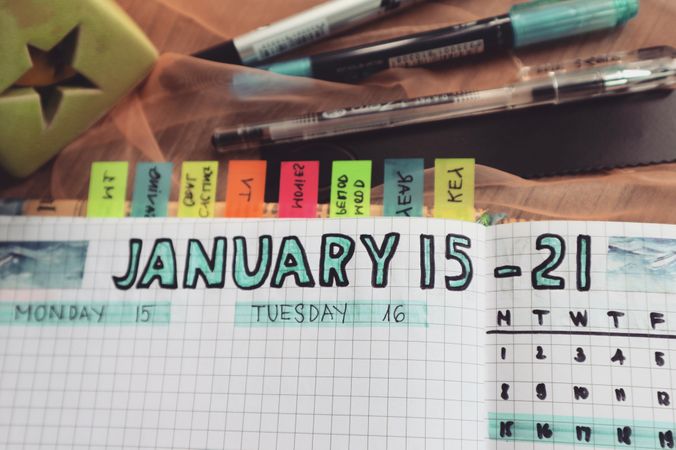 MOVIES
PERIOD
MOOD
YEAR
KEY
JANUARY 15 - 21
MONDAY 15
TUESDAY 16
M T W T F
1 2 3 4 5
8 9 10 11 12
15 16 17 18 19